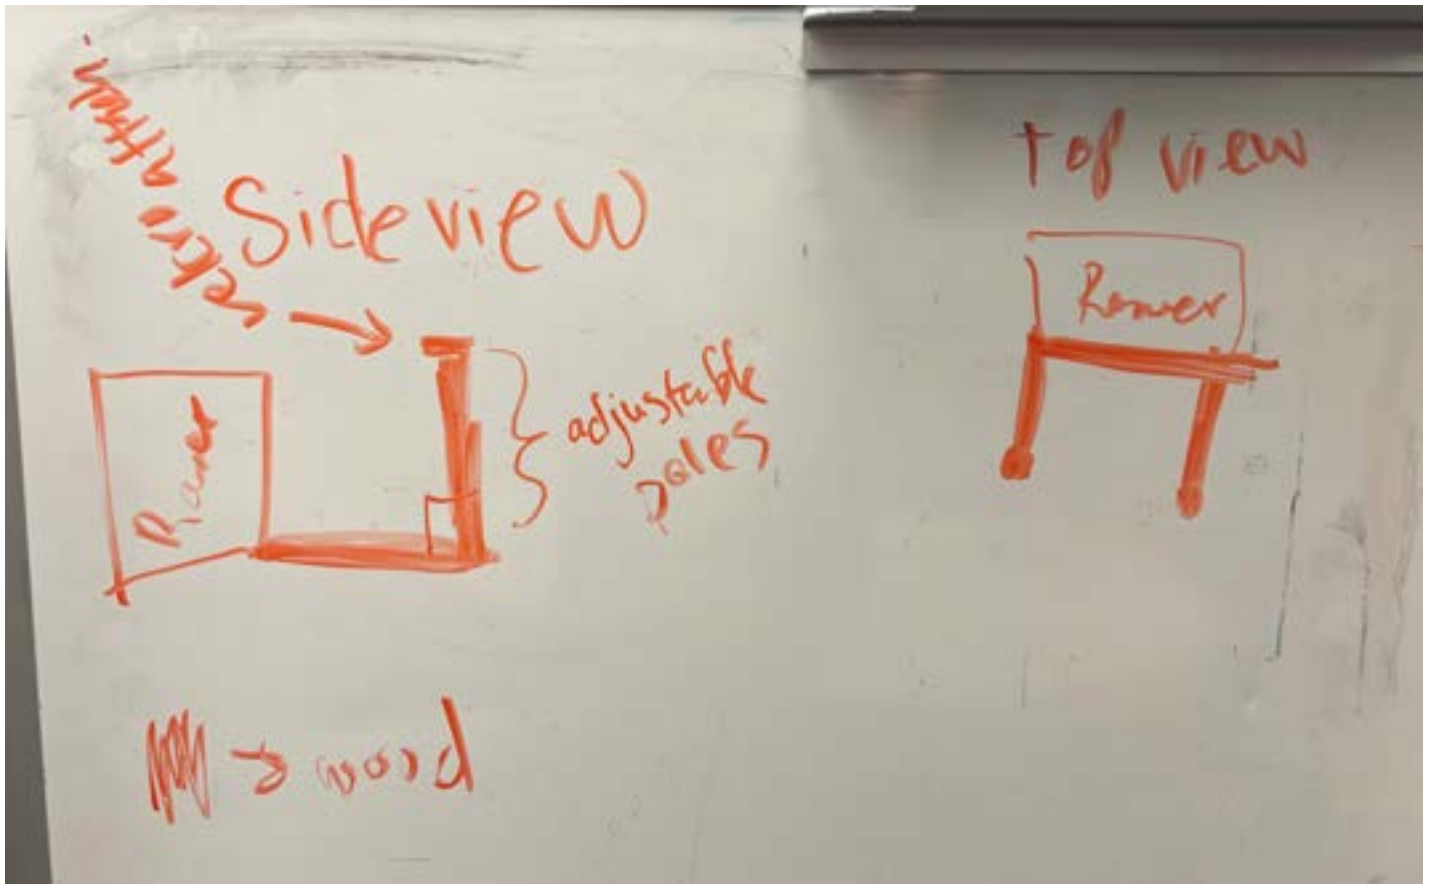 velcro attach.
Sideview
adjustable
poles
→ wood
Top view